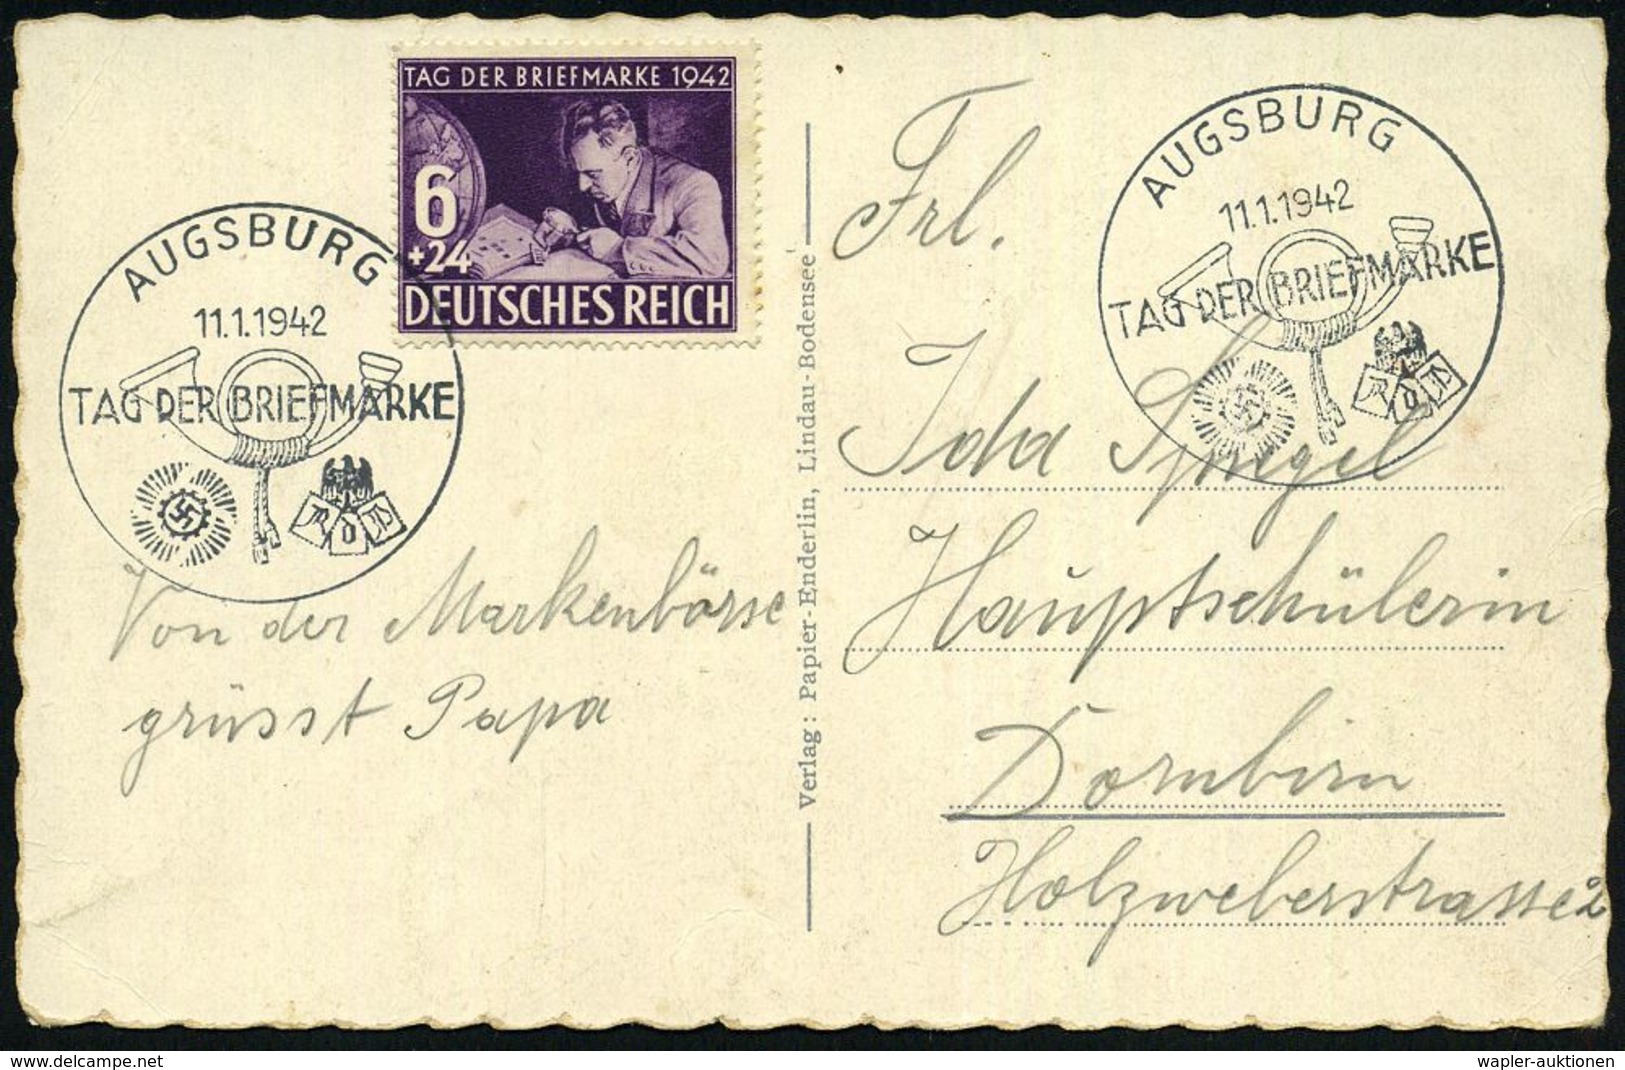 TAG DER BRIEFMARKE 1942
6
+24
DEUTSCHES REICH
AUGSBURG
11.1.1942
TAG DER BRIEFMARKE
R d P
Von der Markenbörse
grüsst Papa
Verlag: Papier-Enderlin, Lindau-Bodensee
AUGSBURG
11.1.1942
TAG DER BRIEFMARKE
R d P
Frl.
Ida Spiegel
Hauptschülerin
Dornbirn
Holzweberstrasse 2
delcampe.net
wapler-auktionen